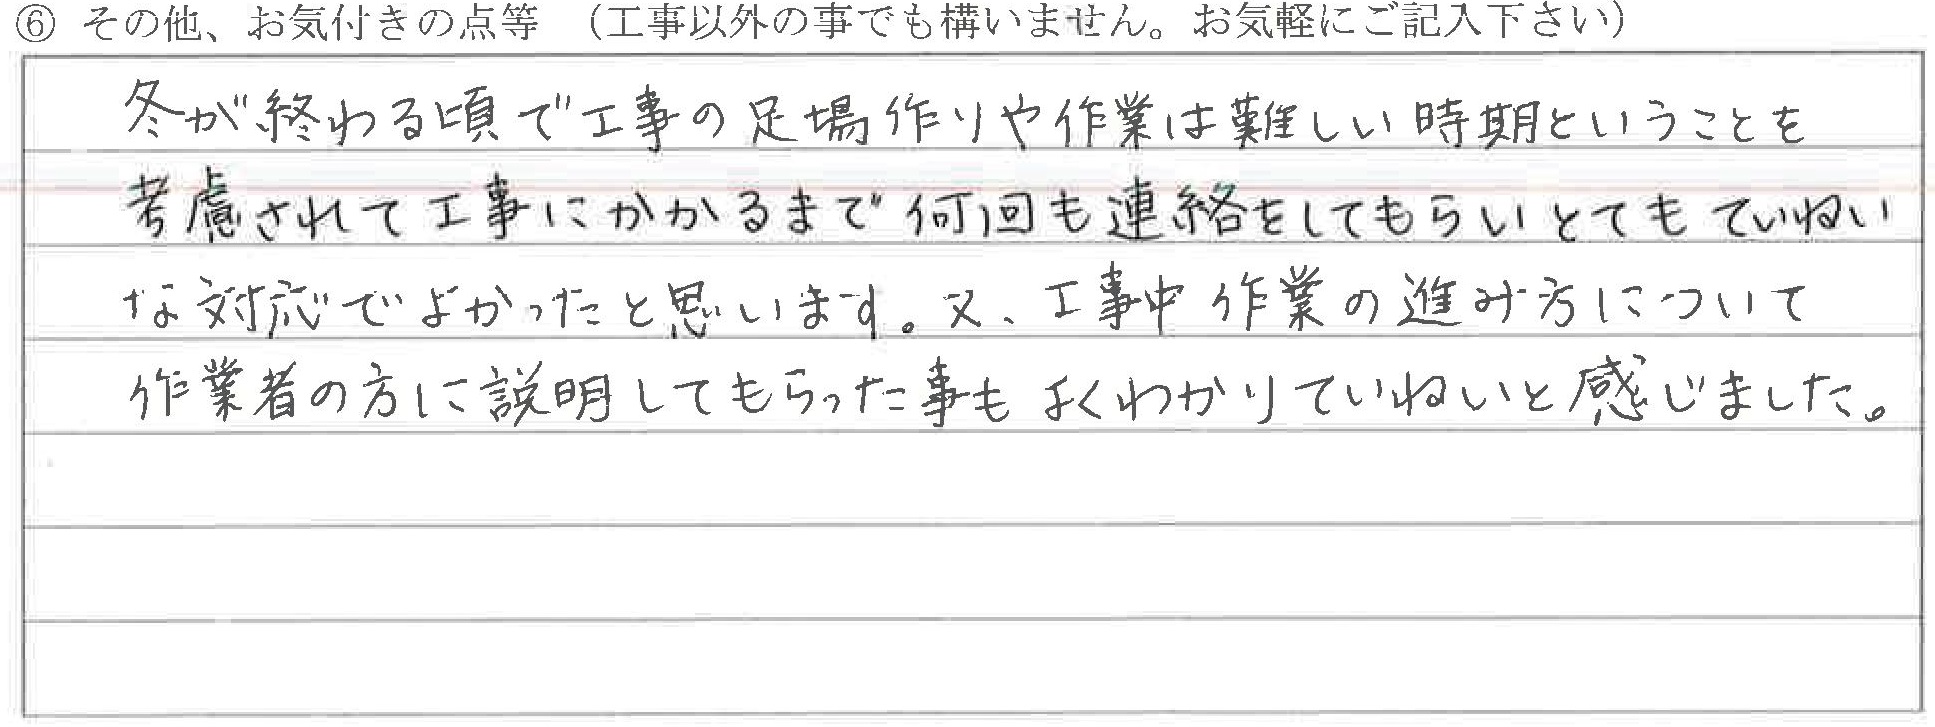 ⑥ その他、お気付きの点等 （工事以外の事でも構いません。お気軽にご記入下さい）
冬が終わる頃で工事の足場作りや作業は難しい時期ということを
考慮されて工事にかかるまで何回も連絡をしてもらいとてもていねい
な対応でよかったと思います。又、工事中作業の進み方について
作業者の方に説明してもらった事もよくわかりていねいと感じました。